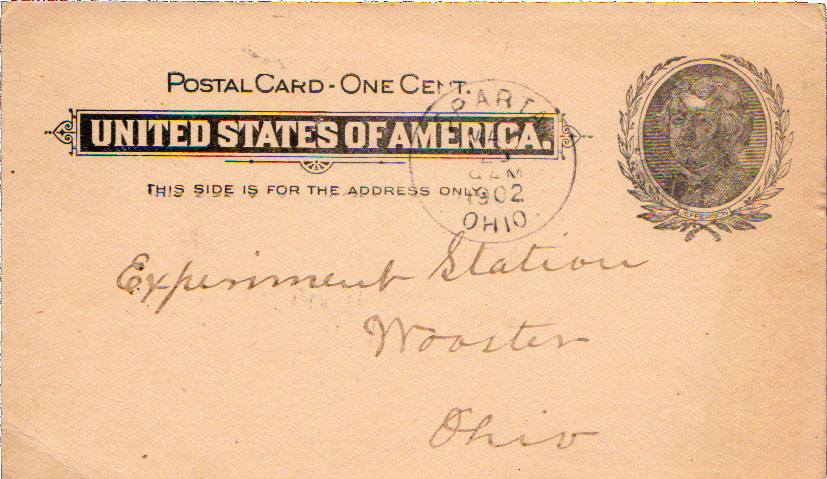 POSTAL CARD - ONE CENT.
UNITED STATES OF AMERICA.
THIS SIDE IS FOR THE ADDRESS ONLY.
1902
OHIO.
JEFFERSON
Experiment Station
Wooster
Ohio